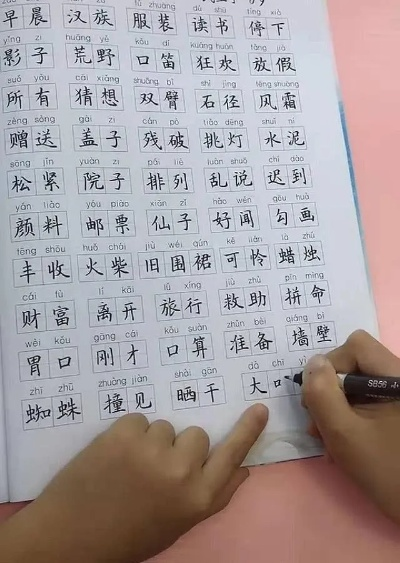 zǎo chén hàn zú fú zhuāng dú shū tíng xià
早晨 汉族 服装 读书 停下
yǐng zi huāng yě kǒu dí kuáng huān fàng jià
影子 荒野 口笛 狂欢 放假
suǒ yǒu cāi xiǎng shuāng bì shí jìng fēng shuāng
所有 猜想 双臂 石径 风霜
zèng sòng gài zi cán pò tiǎo dēng shuǐ ní
赠送 盖子 残破 挑灯 水泥
sōng jǐn yuàn zi pái liè luàn shuō chí dào
松紧 院子 排列 乱说 迟到
yán liào yóu piào xiān zǐ hào wén gōu huà
颜料 邮票 仙子 好闻 勾画
fēng shōu huǒ chái jiù wéi qún kě lián là zhú
丰收 火柴 旧围裙 可怜 蜡烛
cái fù lí kāi lǚ xíng jiù zhù pīn mìng
财富 离开 旅行 救助 拼命
wèi kǒu gāng cái kǒu suàn zhǔn bèi qiáng bì
胃口 刚才 口算 准备 墙壁
zhī zhū zhuàng jiàn shài gān dà chī
蜘蛛 撞见 晒干 大
SB56